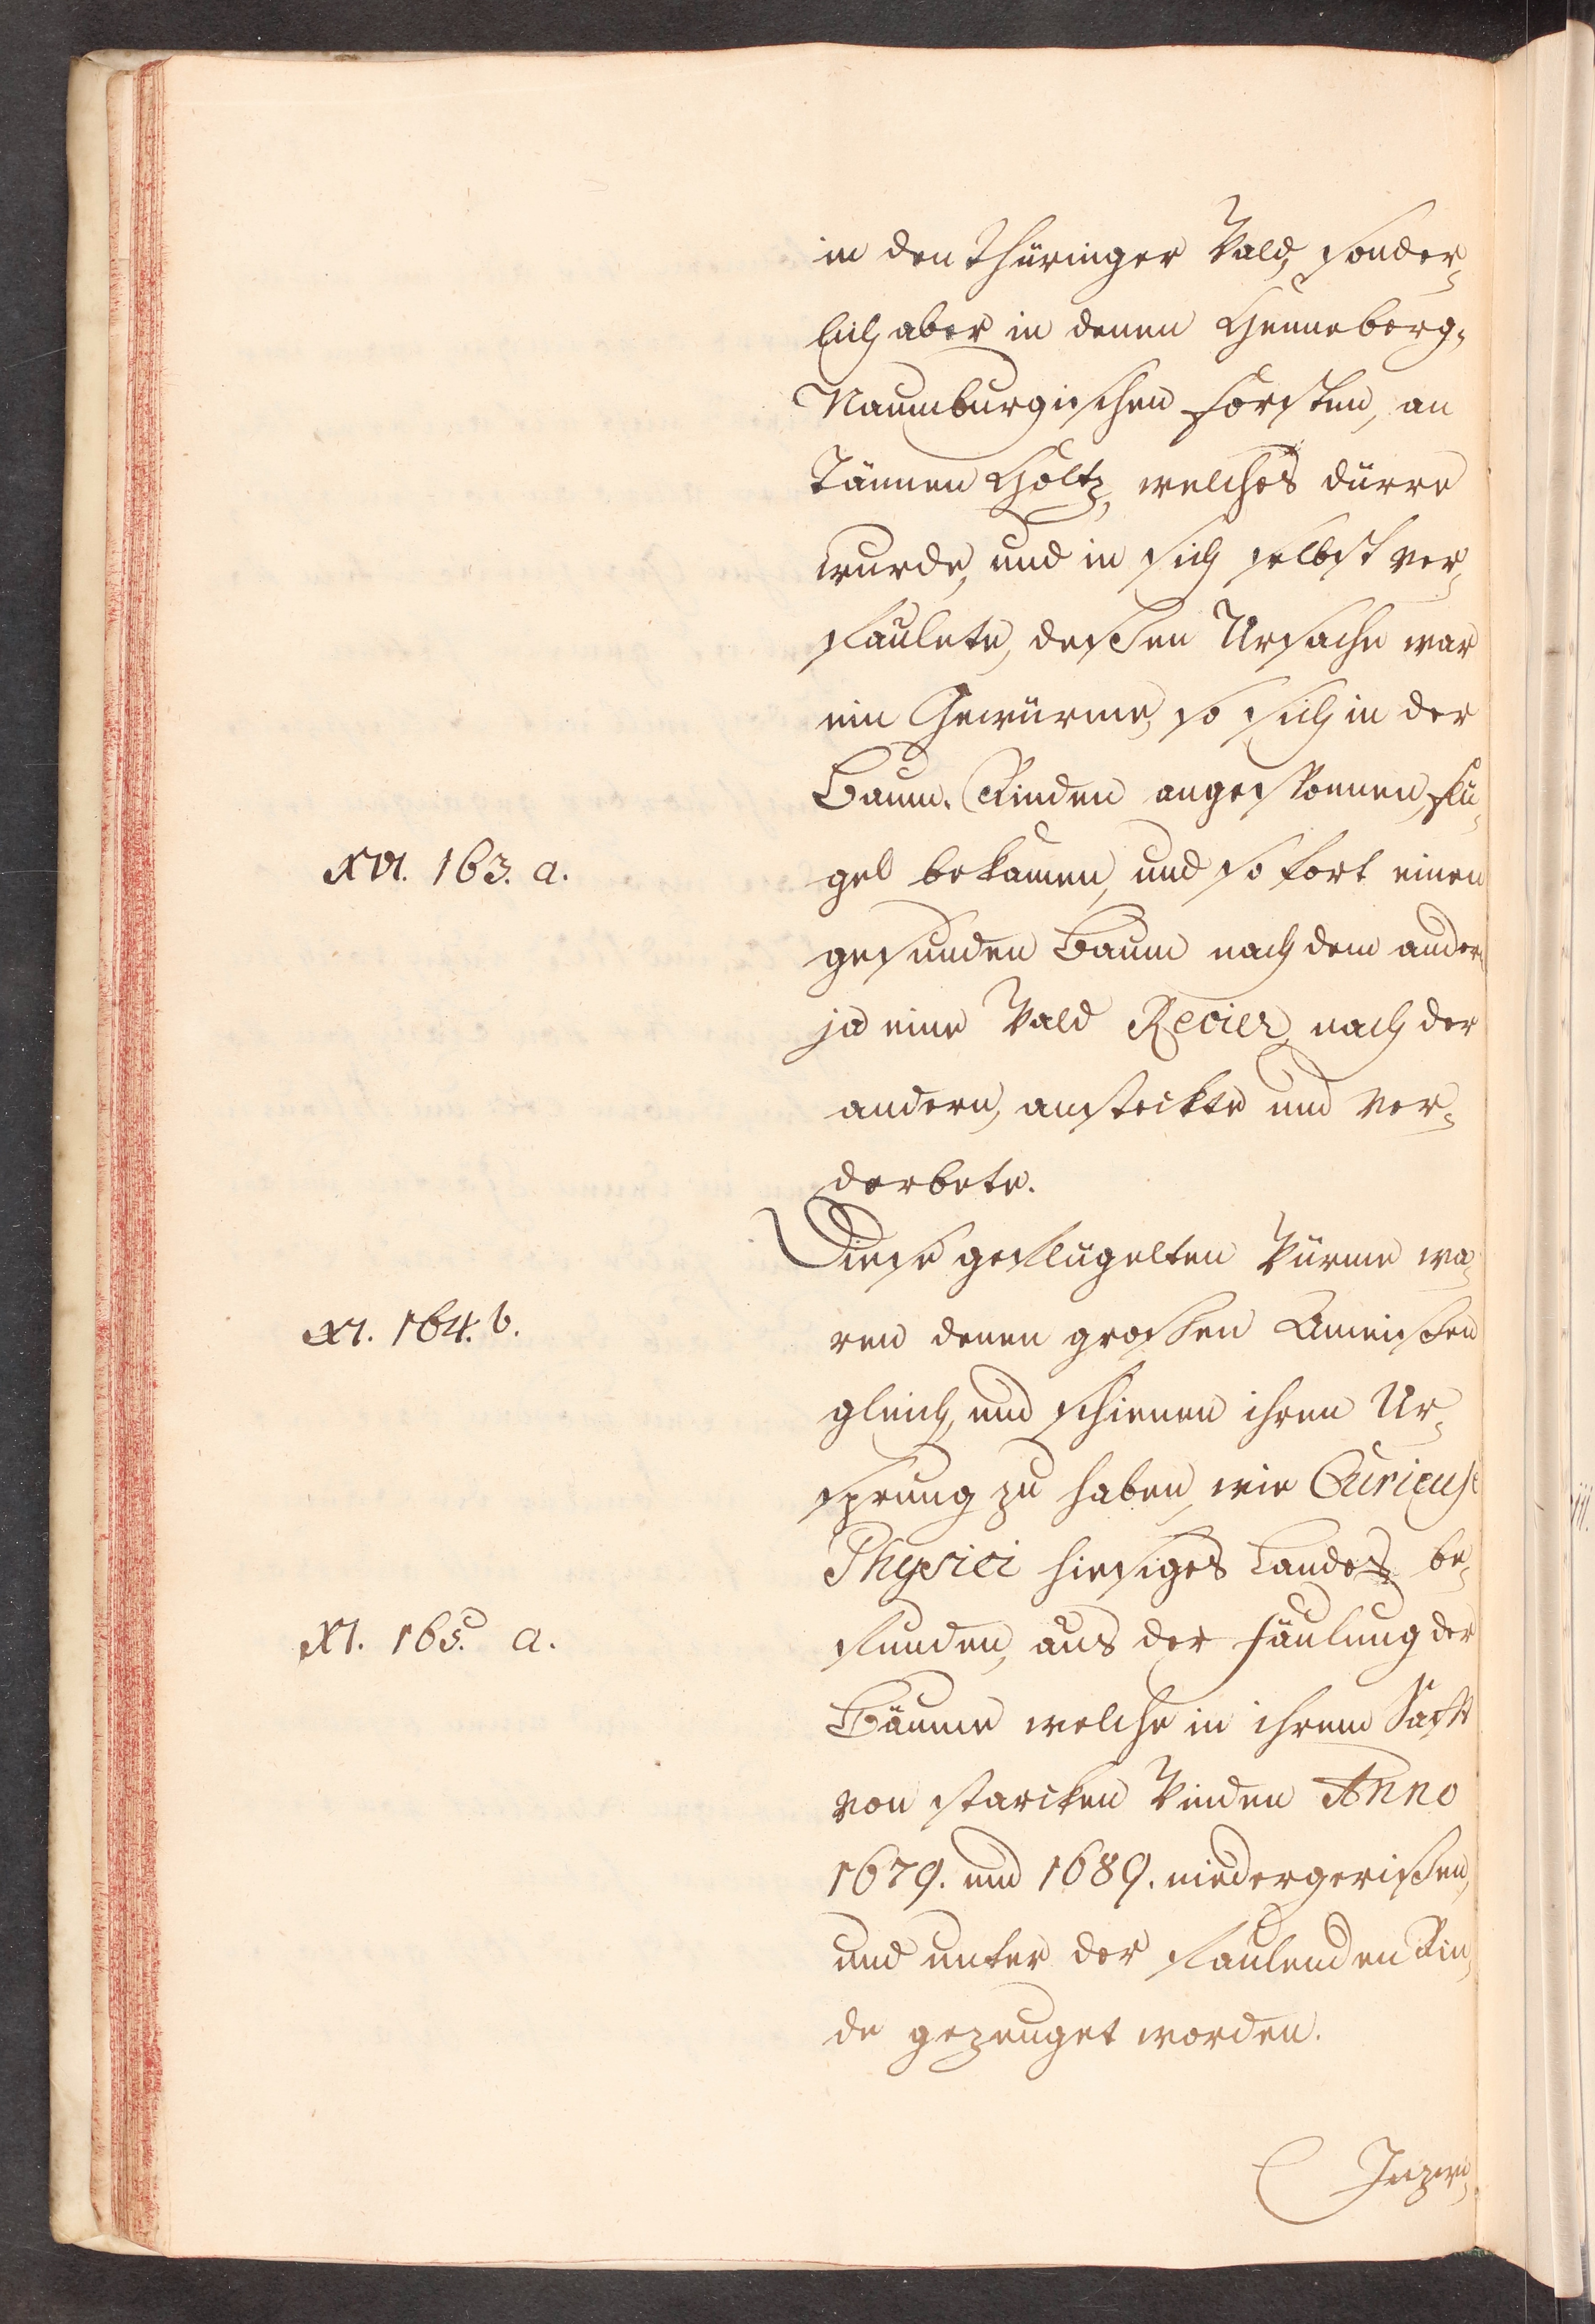 in den Thüringer Wald, sonder-
lich aber in denen Henneberg-
Naumburgischen Forsten, an
Tännen Holtz, welches dürre
wurde, und in sich selbst ver-
faulete, deßen Ursache war
ein Gewürme, so sich in der
Baum-Rinden angesponnen, Flü-
XVI. 163. a.
gel bekamen, und so fort einen
gesunden Baum nach dem andern
ja eine Wald Revier, nach der
andern, ansteckte und ver-
derbete.
Diese geflügelten Würme wa-
XI. 164. b.
ren denen großen Ameißen
gleich, und schienen ihren Ur-
sprung zu haben, wie Curieuse
Physici hiesiges Landes be-
XI. 165. a.
funden, aus der Fäulung der
Bäume welche in ihrem Safft
von starcken Winden Anno
1679. und 1689. niedergerißen,
und unter der faulenden Rin-
de gezeuget worden.
Inzwi-